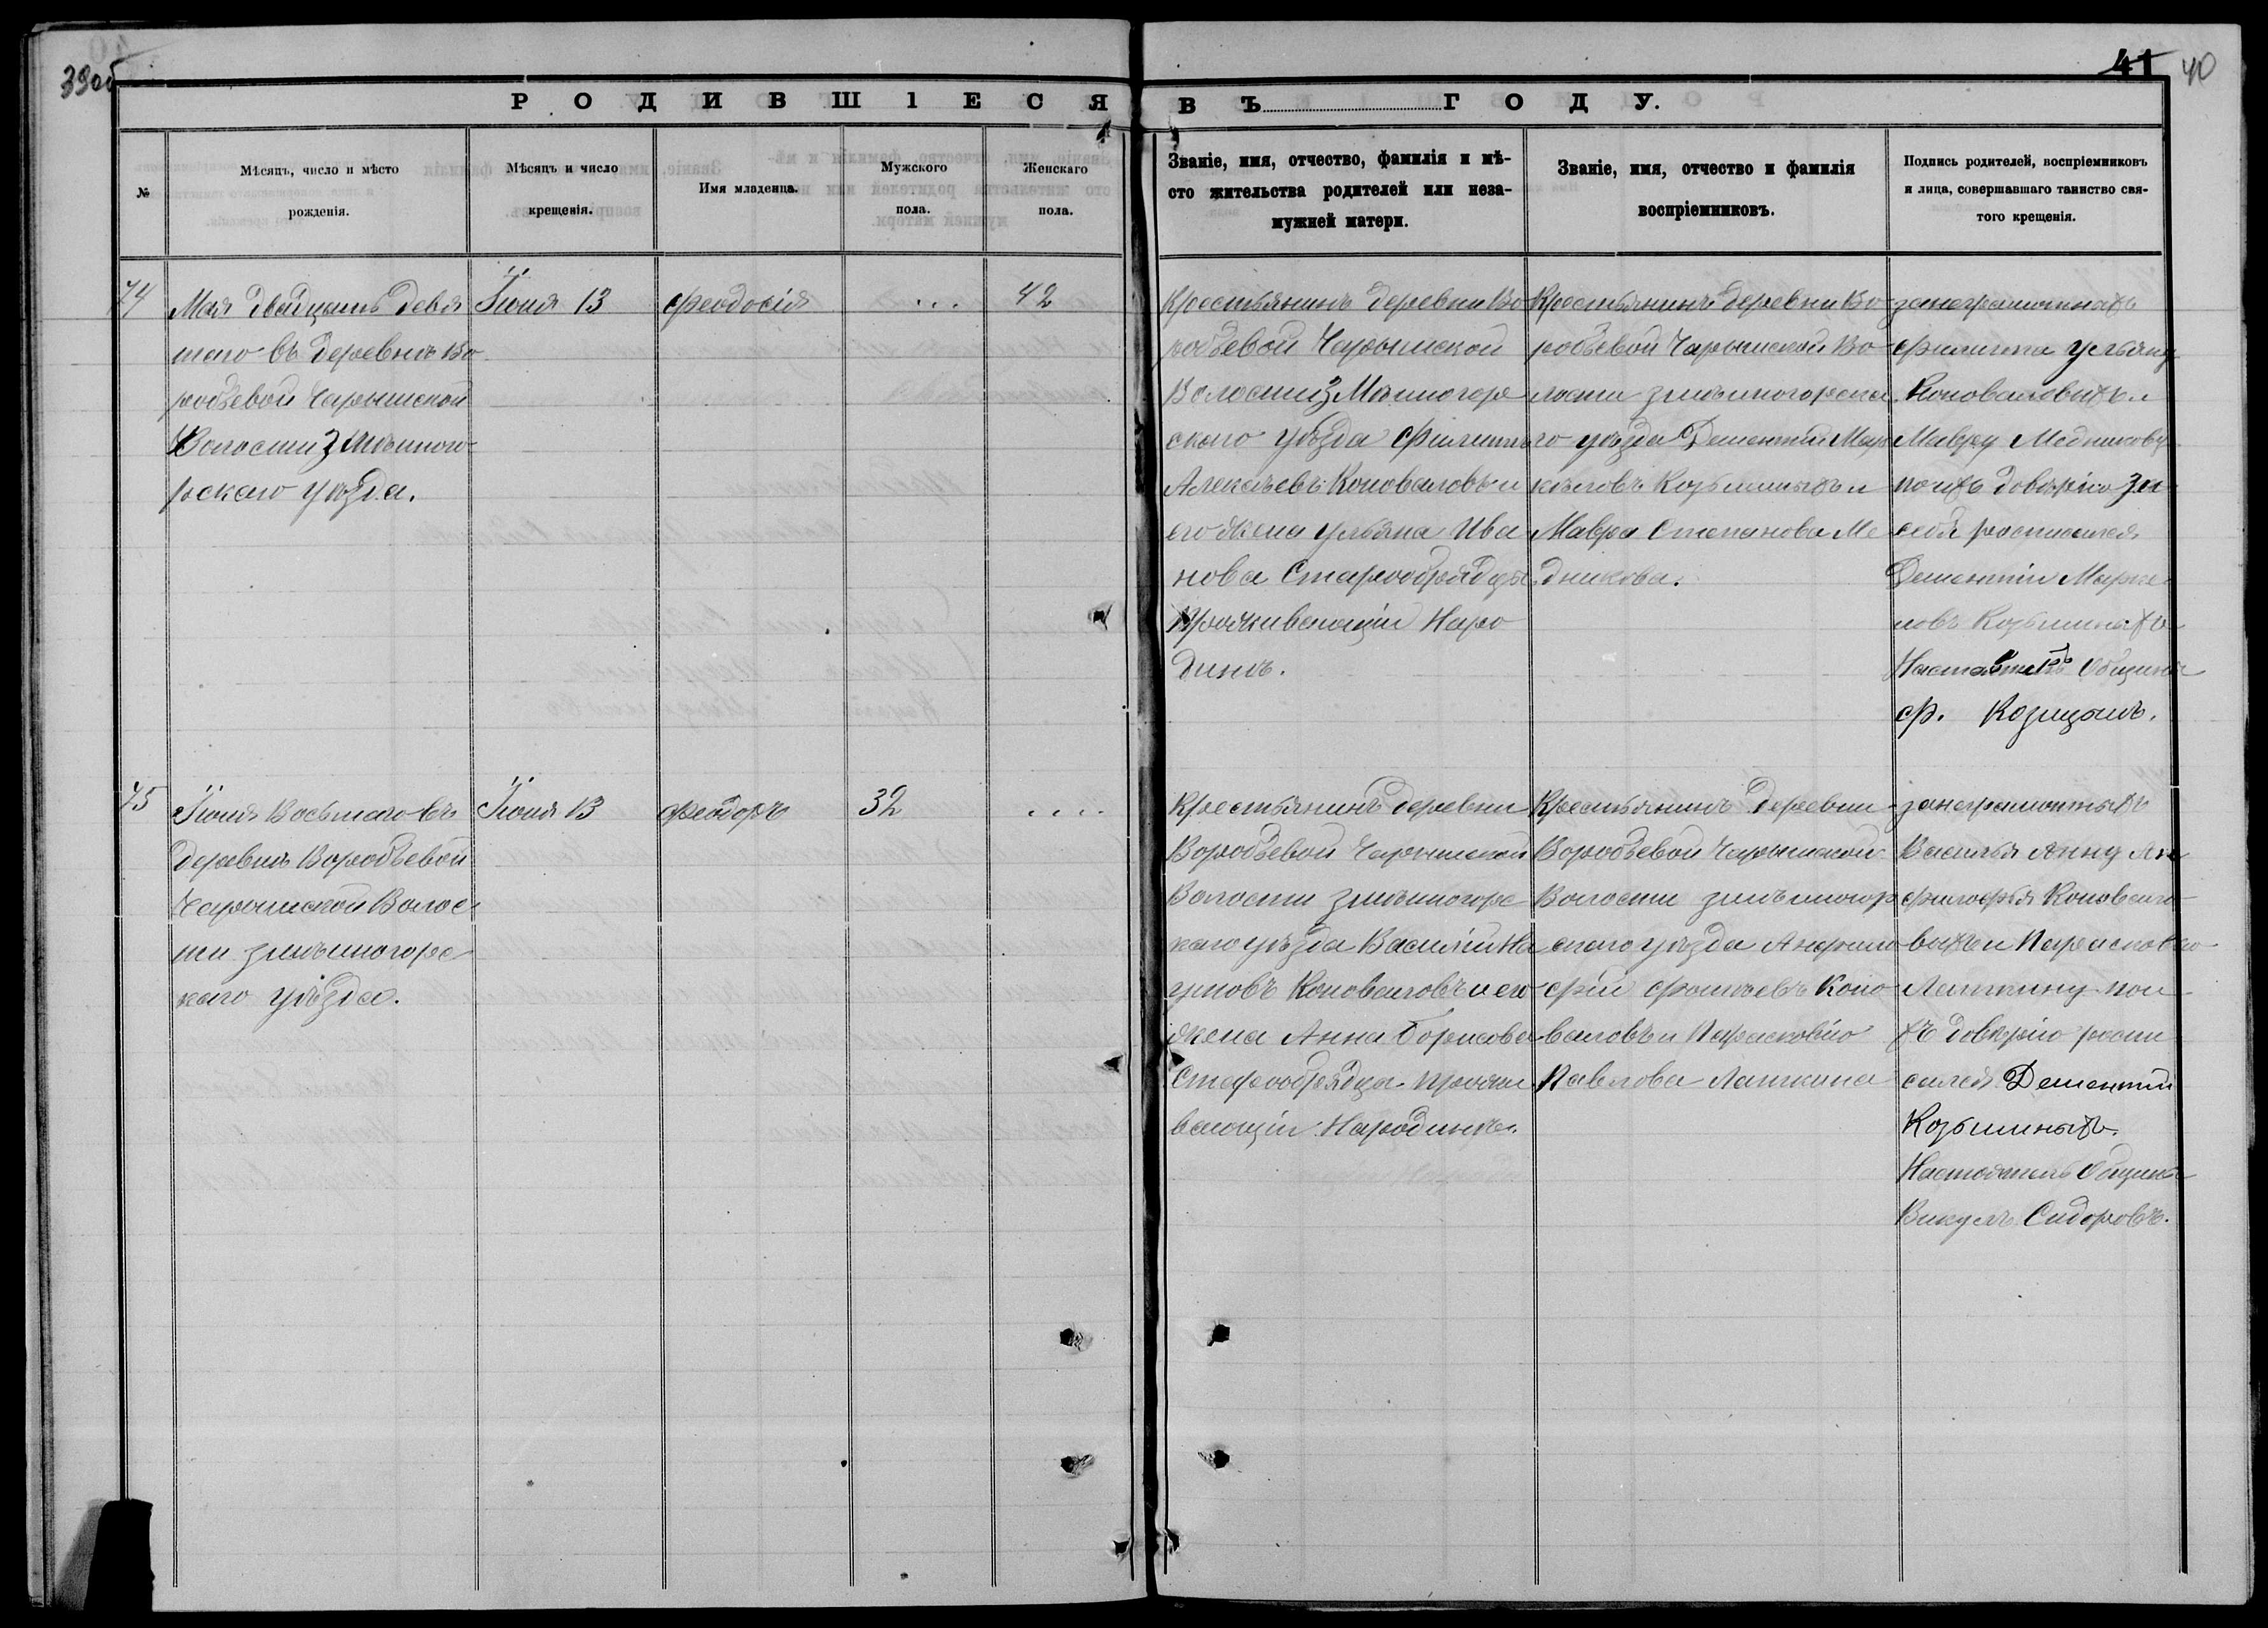 39об
41 40
РОДИВШІЕСЯ ВЪ ГОДУ.
№
Мѣсяцъ, число и мѣсто
рожденія.
Мѣсяцъ и число
крещенія.
Имя младенца.
Мужского
пола.
Женскаго
пола.
Званіе, имя, отчество, фамилія и мѣ-
сто жительства родителей или неза-
мужней матери.
Званіе, имя, отчество и фамилія
воспріемниковъ.
Подпись родителей, воспріемниковъ
и лица, совершавшаго таинство свя-
того крещенія.
74
Мая двадцать девя
таго въ деревнѣ Во
робьевой Чарышской
Волости Змѣиного
рскаго уѣзда.
Іюня 13
Феодосія
...
42
Крестьянинъ деревни Во
робьевой Чарышской
Волости Змѣиногор
скаго уѣзда Филиппъ
Алексѣевъ Коноваловъ и
его жена Ульяна Ива
нова Старообрядцы
Проживающіи На ро
динѣ.
Крестьянинъ деревни Во
робьевой Чарышской Во
лости Змѣиногорска
го уѣзда Дементій Мар
кѣловъ Козьминыхъ и
Мавра Степанова Ме
дникова.
за неграмотныхъ
Филиппа Ульяну
Коноваловыхъ и
Мавру Медникову
по ихъ довѣрію За
себя росписался
Дементій Марке
ловъ Козьминыхъ
Наставникъ Общины
Ф. Козицынъ.
75
Іюня Восьмаго въ
деревнѣ Воробьевой
Чарышской Волос
ти Змѣиногорс
каго уѣзда.
Іюня 13
Феодоръ
32
....
Крестьянинъ деревни
Воробьевой Чарышской
Волости Змѣиногорс
каго уѣзда Василій На
умовъ Коноваловъ и его
жена Анна Борисова
Старообрядцы прожи
вающіи На родинѣ.
Крестьянинъ деревни
Воробьевой Чарышской
Волости Змѣиногор
скаго уѣзда Анфило
фій Фотѣевъ Коно
валовъ и Парасковію
Павлова Лапкина
за неграмотныхъ
Василья Анну Ан
филофья Коновало
выхъ и Парасковію
Лапкину по и
хъ довѣрію роспи
сался Дементій
Козьминыхъ.
Настоятель Общины
Викулъ Сидоровъ.